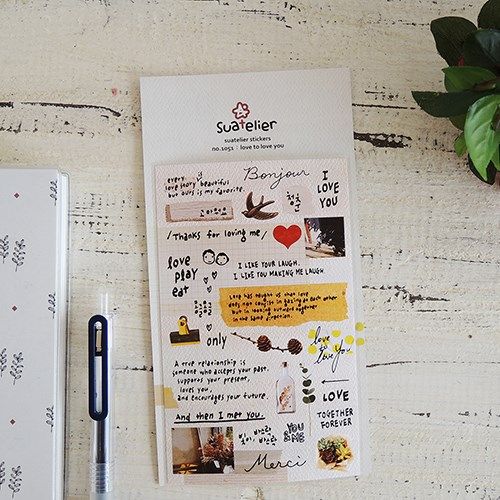 suatelier
suatelier stickers
no.1051 · love to love you
every
love story is beautiful
but ours is my favorite.
Bonjour
I
LOVE
YOU
고마워요
청춘
/Thanks for loving me/
love
play
eat
I LIKE YOUR LAUGH.
I LIKE YOU MAKING ME LAUGH.
Love has taught us that love
does not consist in gazing at each other
but in looking outward together
in the same direction.
only
love
to
love you
A true relationship is
someone who accepts your past,
supports your present,
loves you,
and encourages your future.
LOVE
TOGETHER
FOREVER
And then I met you.
YOU
&ME
Merci